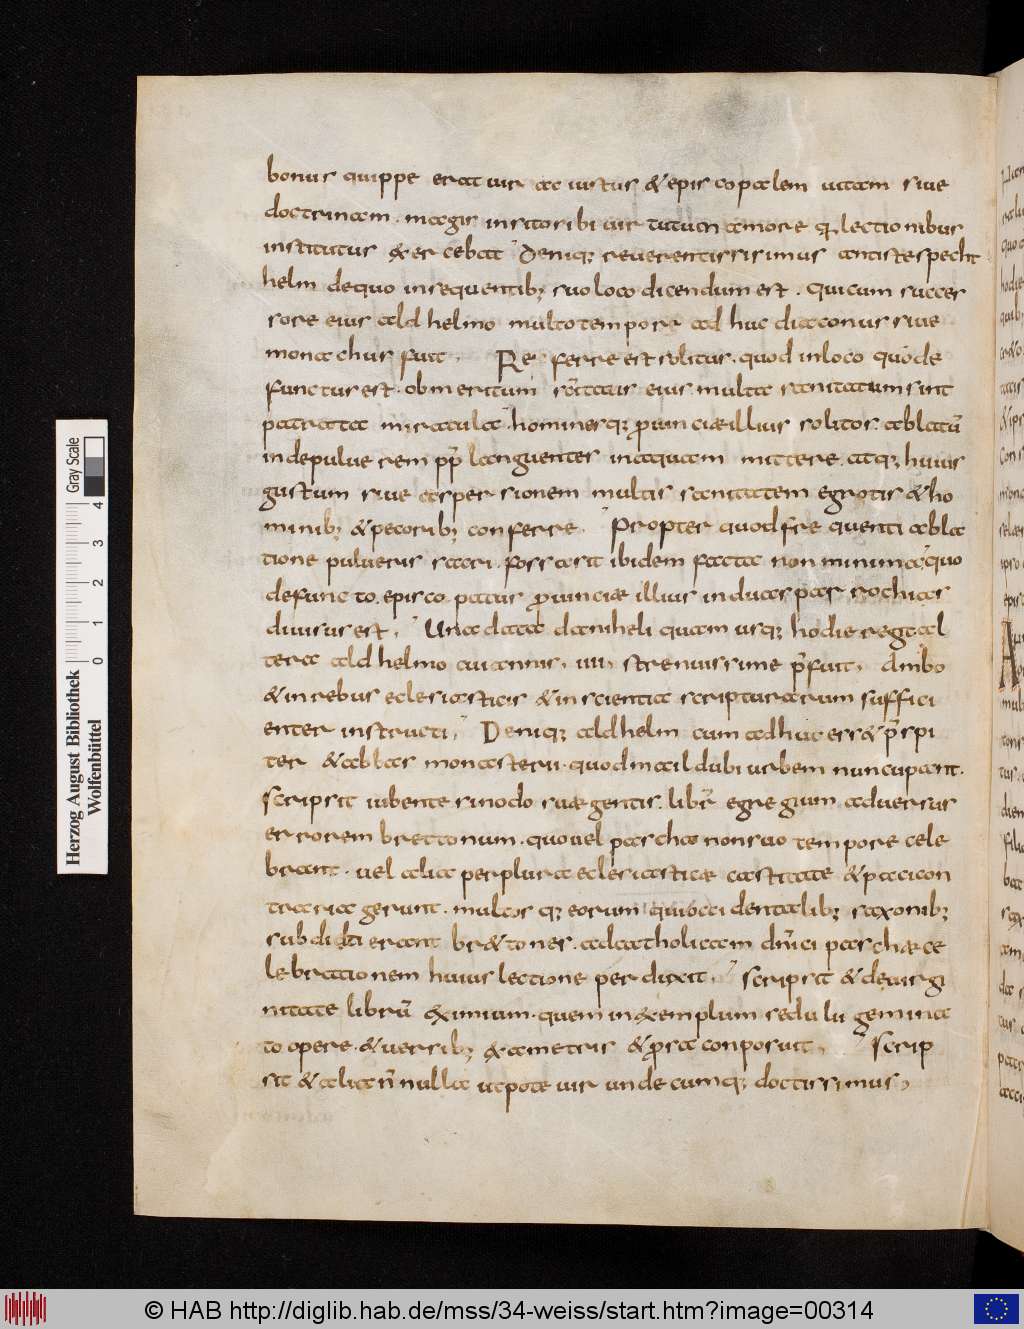 bonus quippe erat uir ac iustus & episcopalem uitam siue
doctrinam. magis insito sibi uirtutum amore q̄ lectionibus
institutus exercebat Deniq; reuerentissimus antistes pecht
helm dequo insequentib; suo loco dicendum est. qui cum succes
sore eius ald helmo multo tempore ad huc diaconus siue
monachus fuit. Re ferre est solitus. quod inloco quo de
functus est. ob meritum scītatis eius multa sanitatum sint
patrata miracula. hominesq; prouinciae illius solitos. ablatū
inde puluerem pp̄ languentes in aquam mittere. atq; huius
gustum siue aspersionem multis sanitatem egrotis & ho
minib; & pecorib; conferre. Propter quod frequenti abla
tione pulueris sacri. fossa sit ibidem facta non minima. quo
defuncto. episcopatus prouinciae illius in duas parrochias
diuisus est. Una data daniheli quam usq; hodie regit al
tera ald helmo cui annis. IIII. strenuissime p̄fuit. Ambo
& in rebus eclesiasticis & in scientia scripturarum suffici
enter instructi. Deniq; aldhelm cum adhuc ess& p̄spi
ter & abbas monasterii. quod maildubi urbem nuncupant.
scripsit iubente sinodo suae gentis. libr̄ egregium aduersus
errorem brettonum. quo uel pascha non suo tempore cele
brant. uel alia perplura eclesiasticae castitate & paci con
traria gerunt. multos q; eorum qui occidentalib; saxonib;
subditi erant br&tones. ad catholicam dn̄ici paschae ce
lebrationem huius lectione perduxit. scripsit & de uirgi
nitate librū eximium. quem in exemplum sedulii gemina
to opere. & uersib; exametris & prosa conposuit. scrip
sit & alia n̄ nulla utpote uir undecumq; doctissimus,
Herzog August Bibliothek
Wolfenbüttel
Gray Scale
0 1 2 3 4
© HAB http://diglib.hab.de/mss/34-weiss/start.htm?image=00314